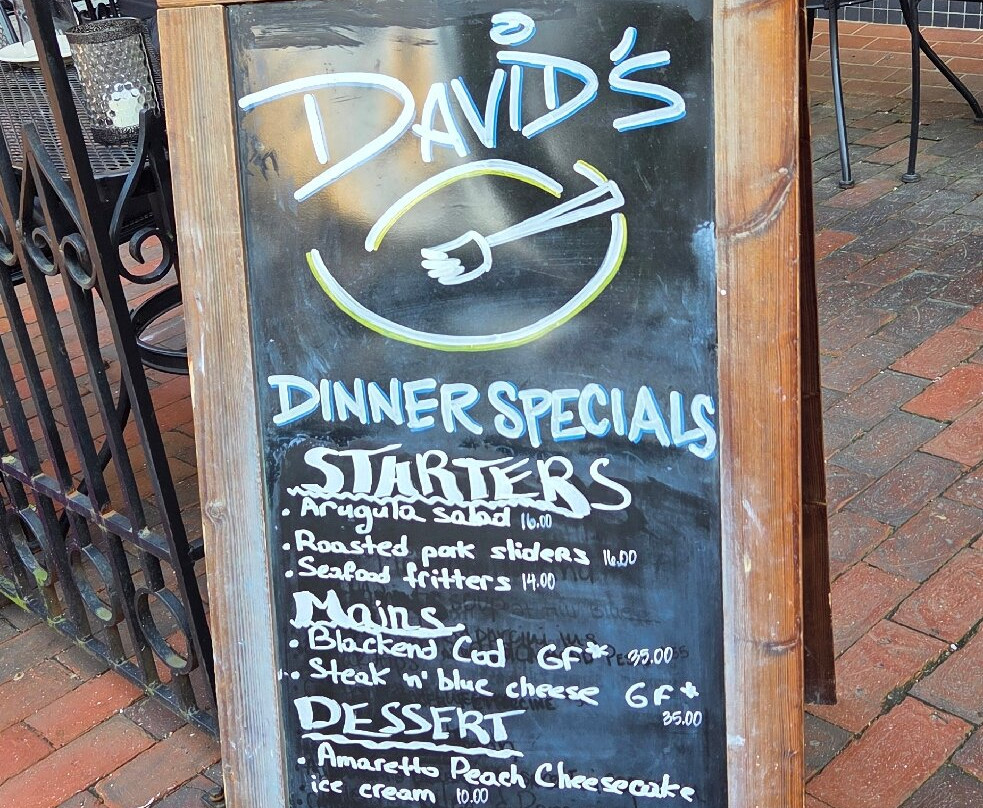 DAVID'S
DINNER SPECIALS
STARTERS
• Arugula salad 16.00
• Roasted pork sliders 16.00
• Seafood fritters 14.00
Mains
• Blackend Cod GF* 35.00
• Steak n' blue cheese GF*
35.00
DESSERT
• Amaretto Peach Cheesecake
ice cream 10.00